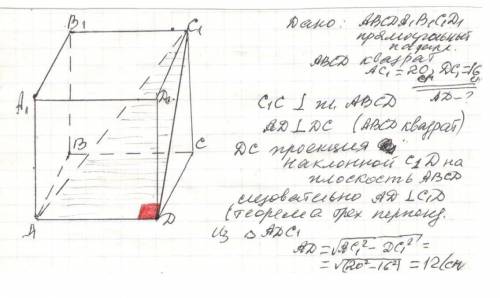 B₁
C₁
A₁
D₁
B
C
A
D
Дано: ABCDA₁B₁C₁D₁
прямоугольный
паралл.
ABCD квадрат
AC₁=20, DC₁=16
см
AD-?
C₁C ⊥ пл. ABCD
AD ⊥ DC (ABCD квадрат)
DC проекция
наклонной C₁D на
плоскость ABCD
следовательно AD ⊥ C₁D
(теорема о трех перпенд.
Из △ ADC₁
AD = √AC₁² - DC₁² =
= √(20²-16²) = 12(см